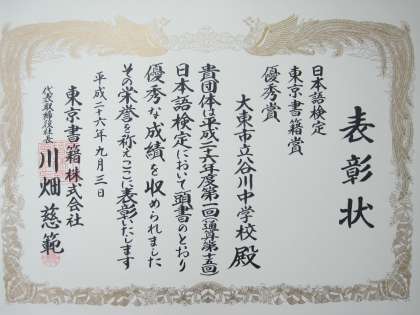 表彰状
日本語検定
東京書籍賞
優秀賞
大東市立谷川中学校 殿
貴団体は平成二六年度第一回(通算第十五回)
日本語検定において頭書のとおり
優秀な成績を収められました
その栄誉を称えここに表彰いたします
平成二十六年九月三日
東京書籍株式会社
代表取締役社長 川畑慈範